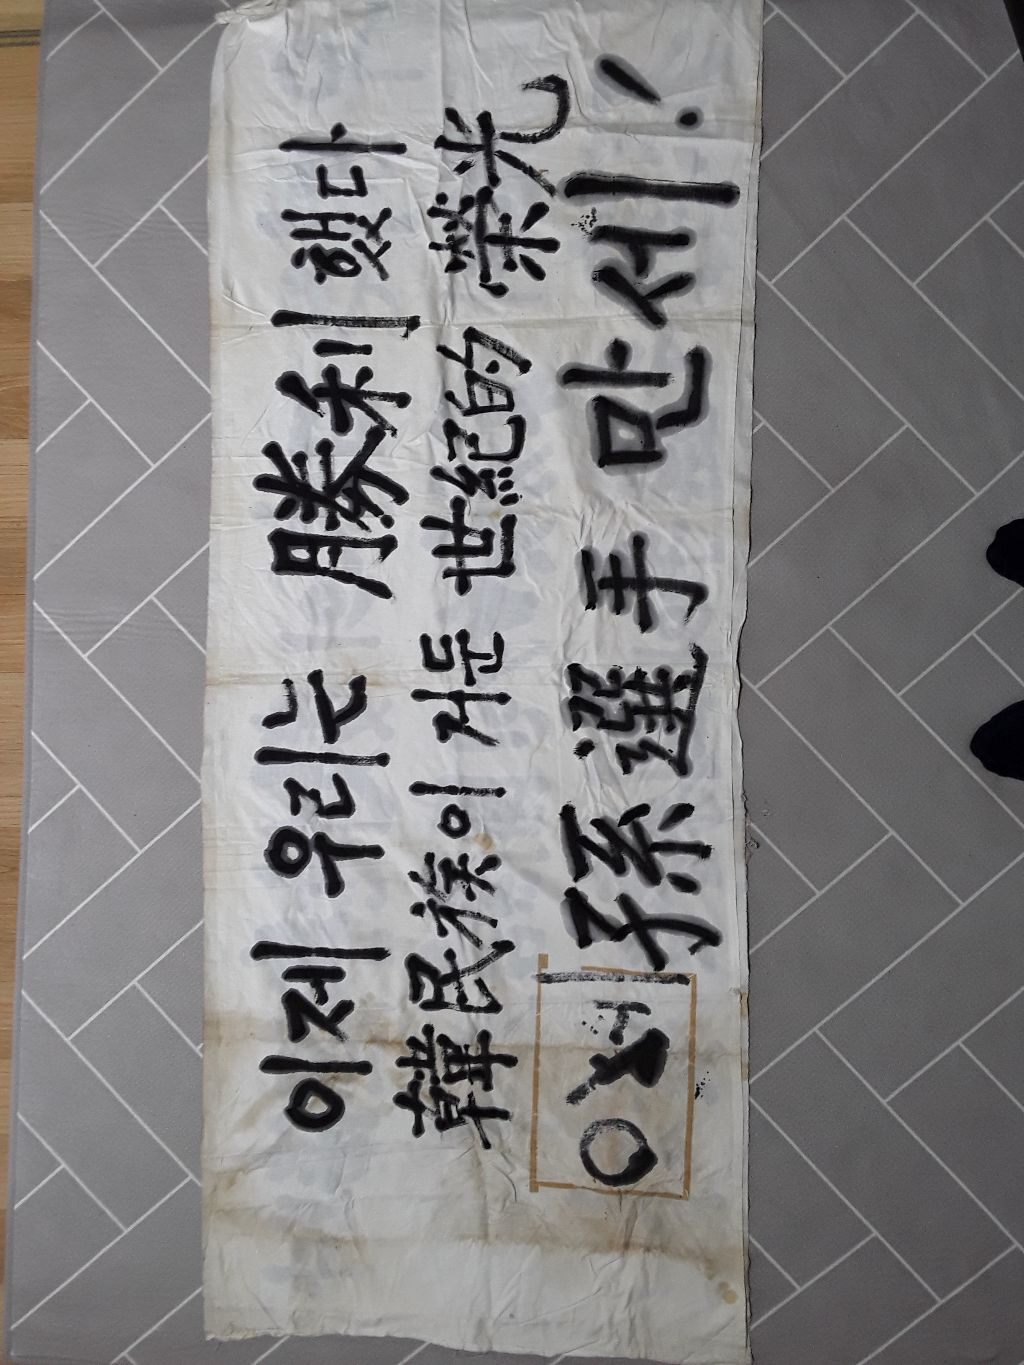 이제 우리는 勝利 했다
韓民族이 거둔 世紀的 榮光
孫選手 만세!